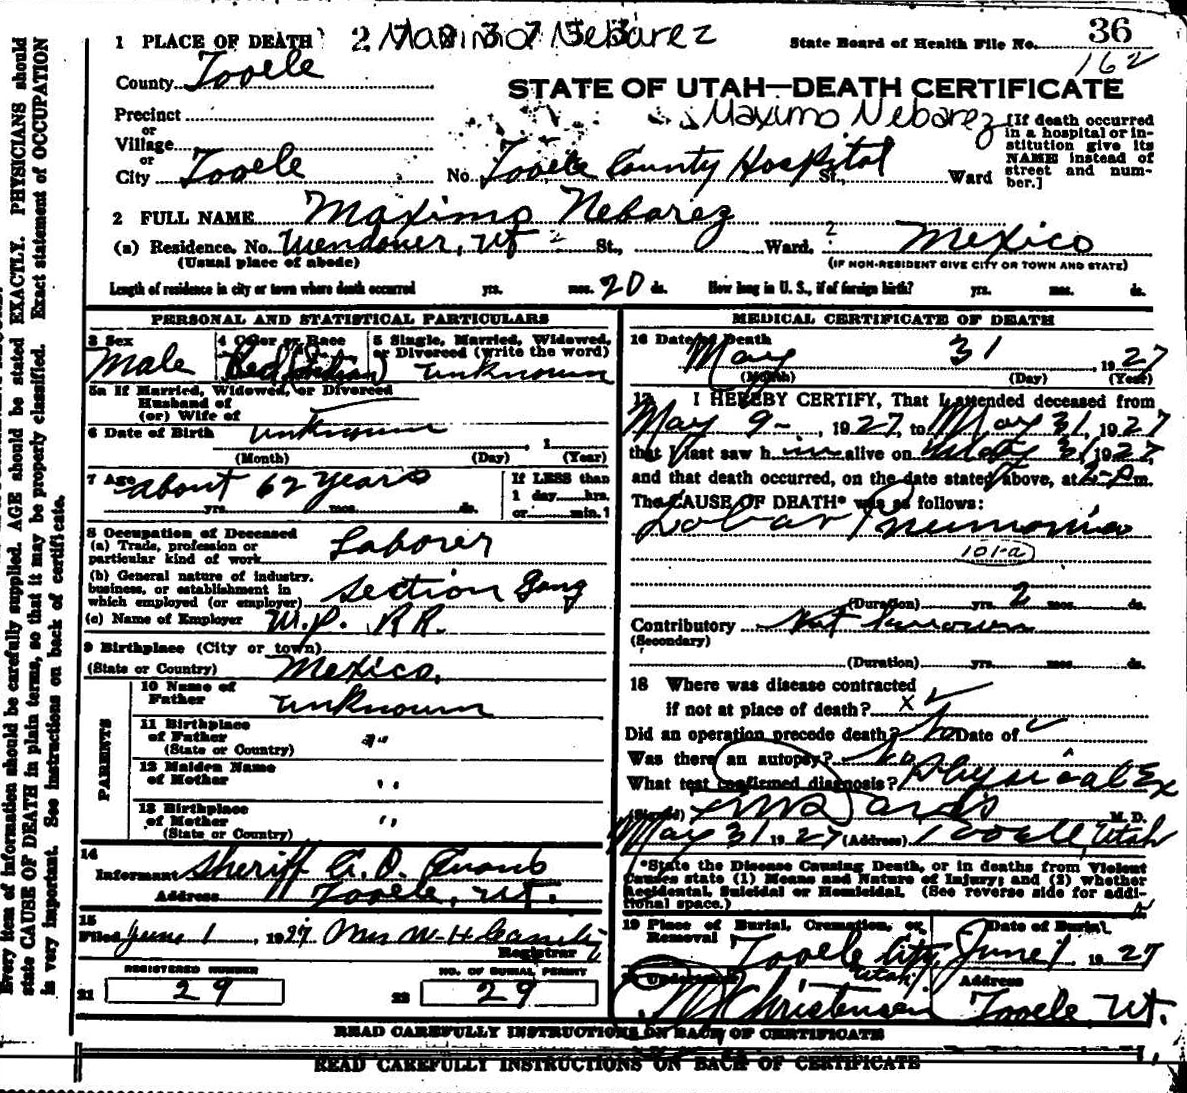 1 PLACE OF DEATH Maximo Nebarez State Board of Health File No. 36
162
County Tooele
STATE OF UTAH—DEATH CERTIFICATE
Precinct
Maximo Nebarez
or
Village
or
City Tooele No. Tooele County Hospital St., Ward
[If death occurred
in a hospital or in-
stitution give its
NAME instead of
street and num-
ber.]
2 FULL NAME Maximo Nebarez
(a) Residence, No. Wendover, Ut St., Ward, Mexico
(Usual place of abode) (IF NON-RESIDENT GIVE CITY OR TOWN AND STATE)
Length of residence in city or town where death occurred yrs. mos. 20 ds. How long in U. S., if of foreign birth? yrs. mos. ds.
PERSONAL AND STATISTICAL PARTICULARS
3 Sex
Male
4 Color or Race
Red (Indian)
5 Single, Married, Widowed,
or Divorced (write the word)
unknown
5a If Married, Widowed, or Divorced
Husband of
(or) Wife of
6 Date of Birth unknown , 1
(Month) (Day) (Year)
7 Age about 62 years
yrs. mos. ds.
If LESS than
1 day hrs.
or min.?
8 Occupation of Deceased
(a) Trade, profession or
particular kind of work Laborer
(b) General nature of industry,
business, or establishment in
which employed (or employer) Section Gang
(c) Name of Employer W.P. RR.
9 Birthplace (City or town)
(State or Country) Mexico.
PARENTS
10 Name of
Father unknown
11 Birthplace
of Father
(State or Country)
12 Maiden Name
of Mother "
13 Birthplace
of Mother "
(State or Country)
14
Informant Sheriff
Address Tooele, Ut.
15
Filed June 1, 1927 Mrs W. H.
Registrar
REGISTERED NUMBER
21 29
NO. OF BURIAL PERMIT
22 29
MEDICAL CERTIFICATE OF DEATH
16 Date of Death
May 31, 1927
(Month) (Day) (Year)
17 I HEREBY CERTIFY, That I attended deceased from
May 9-, 1927, to May 31, 1927
that I last saw him alive on May 31, 1927,
and that death occurred, on the date stated above, at 2-P.m.
The CAUSE OF DEATH* was as follows:
Lobar Pneumonia
101-a
(Duration) yrs. 2 mos. ds.
Contributory Not Known
(Secondary)
(Duration) yrs. mos. ds.
18 Where was disease contracted
if not at place of death? x
Did an operation precede death? No Date of
Was there an autopsy? No
What test confirmed diagnosis? Physical Ex
(Signed) M. D.
May 31 1927 (Address) Tooele, Utah
*State the Disease Causing Death, or in deaths from Violent
Causes state (1) Means and Nature of Injury; and (2) whether
Accidental, Suicidal or Homicidal. (See reverse side for addi-
tional space.)
19 Place of Burial, Cremation, or
Removal Tooele City, Utah
Date of Burial
June 1 1927
Christensen
Address
Tooele Ut.
READ CAREFULLY INSTRUCTIONS ON BACK OF CERTIFICATE
READ CAREFULLY INSTRUCTIONS ON BACK OF CERTIFICATE
Every item of information should be carefully supplied. AGE should be stated EXACTLY. PHYSICIANS should
state CAUSE OF DEATH in plain terms, so that it may be properly classified. Exact statement of OCCUPATION
is very important. See instructions on back of certificate.